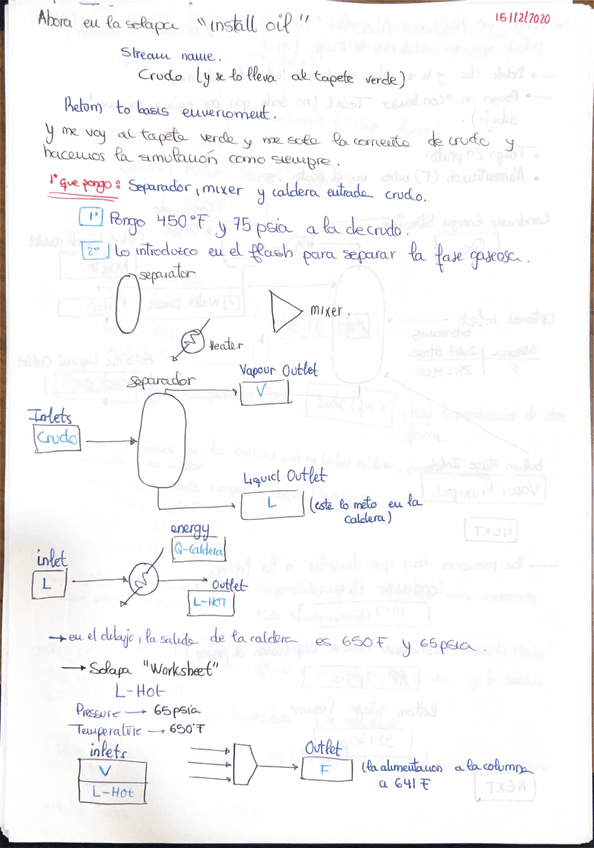 16/12/2020
Ahora en la solapa "install oil"
Stream name.
Crudo (y se lo lleva al tapete verde)
Return to basis enverioment.
Y me voy al tapete verde y me sale la corriente de crudo y
hacemos la simulación como siempre.
1º que pongo: Separador, mixer y caldera entrada crudo.
1º Pongo 450°F y 75 psia a la de crudo.
2º Lo introduzco en el flash para separar la fase gaseosa.
separator
mixer.
Heater
separador
Vapour Outlet
V
Inlets
Crudo
Liquid Outlet
L
(este lo meto en la
caldera)
energy
Q-caldera
inlet
L
Outlet
L-HOT
→ en el dibujo, la salida de la caldera es 650 F y 65 psia.
→ Solapa "Worksheet"
L-Hot
Pressure → 65 psia
Temperature → 650°F
inlets
V
L-Hot
Outlet
F
(la alimentacion a la columna
a 641 F